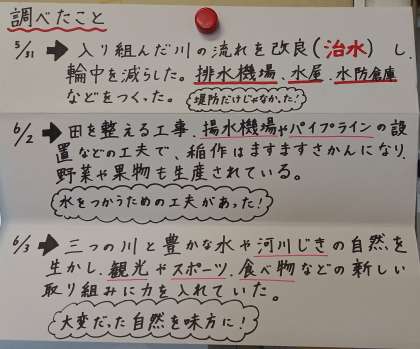 調べたこと
5/31 ➡ 入り組んだ川の流れを改良(治水)し、
輪中を減らした。排水機場、水屋、水防倉庫
などをつくった。 堤防だけじゃなかった!
6/2 ➡ 田を整える工事、揚水機場やパイプラインの設
置などの工夫で、稲作はますますさかんになり、
野菜や果物も生産されている。
水をつかうための工夫があった!
6/3 ➡ 三つの川と豊かな水や河川じきの自然を
生かし、観光やスポーツ、食べ物などの新しい
取り組みに力を入れていた。
大変だった自然を味方に!